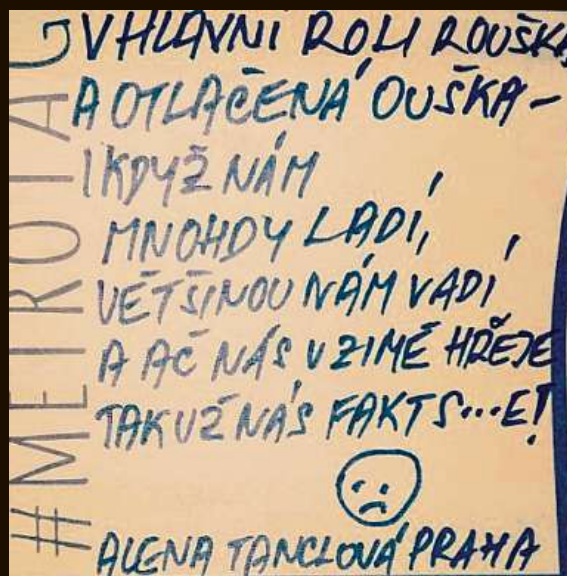 #METROTAG
V HLAVNÍ ROLI ROUŠKA
A OTLAČENÁ OUŠKA –
I KDYŽ NÁM
MNOHDY LADÍ,
VĚTŠINOU NÁM VADÍ
A AČ NÁS V ZIMĚ HŘEJE
TAK UŽ NÁS FAKT S...E!
ALENA TANCLOVÁ PRAHA